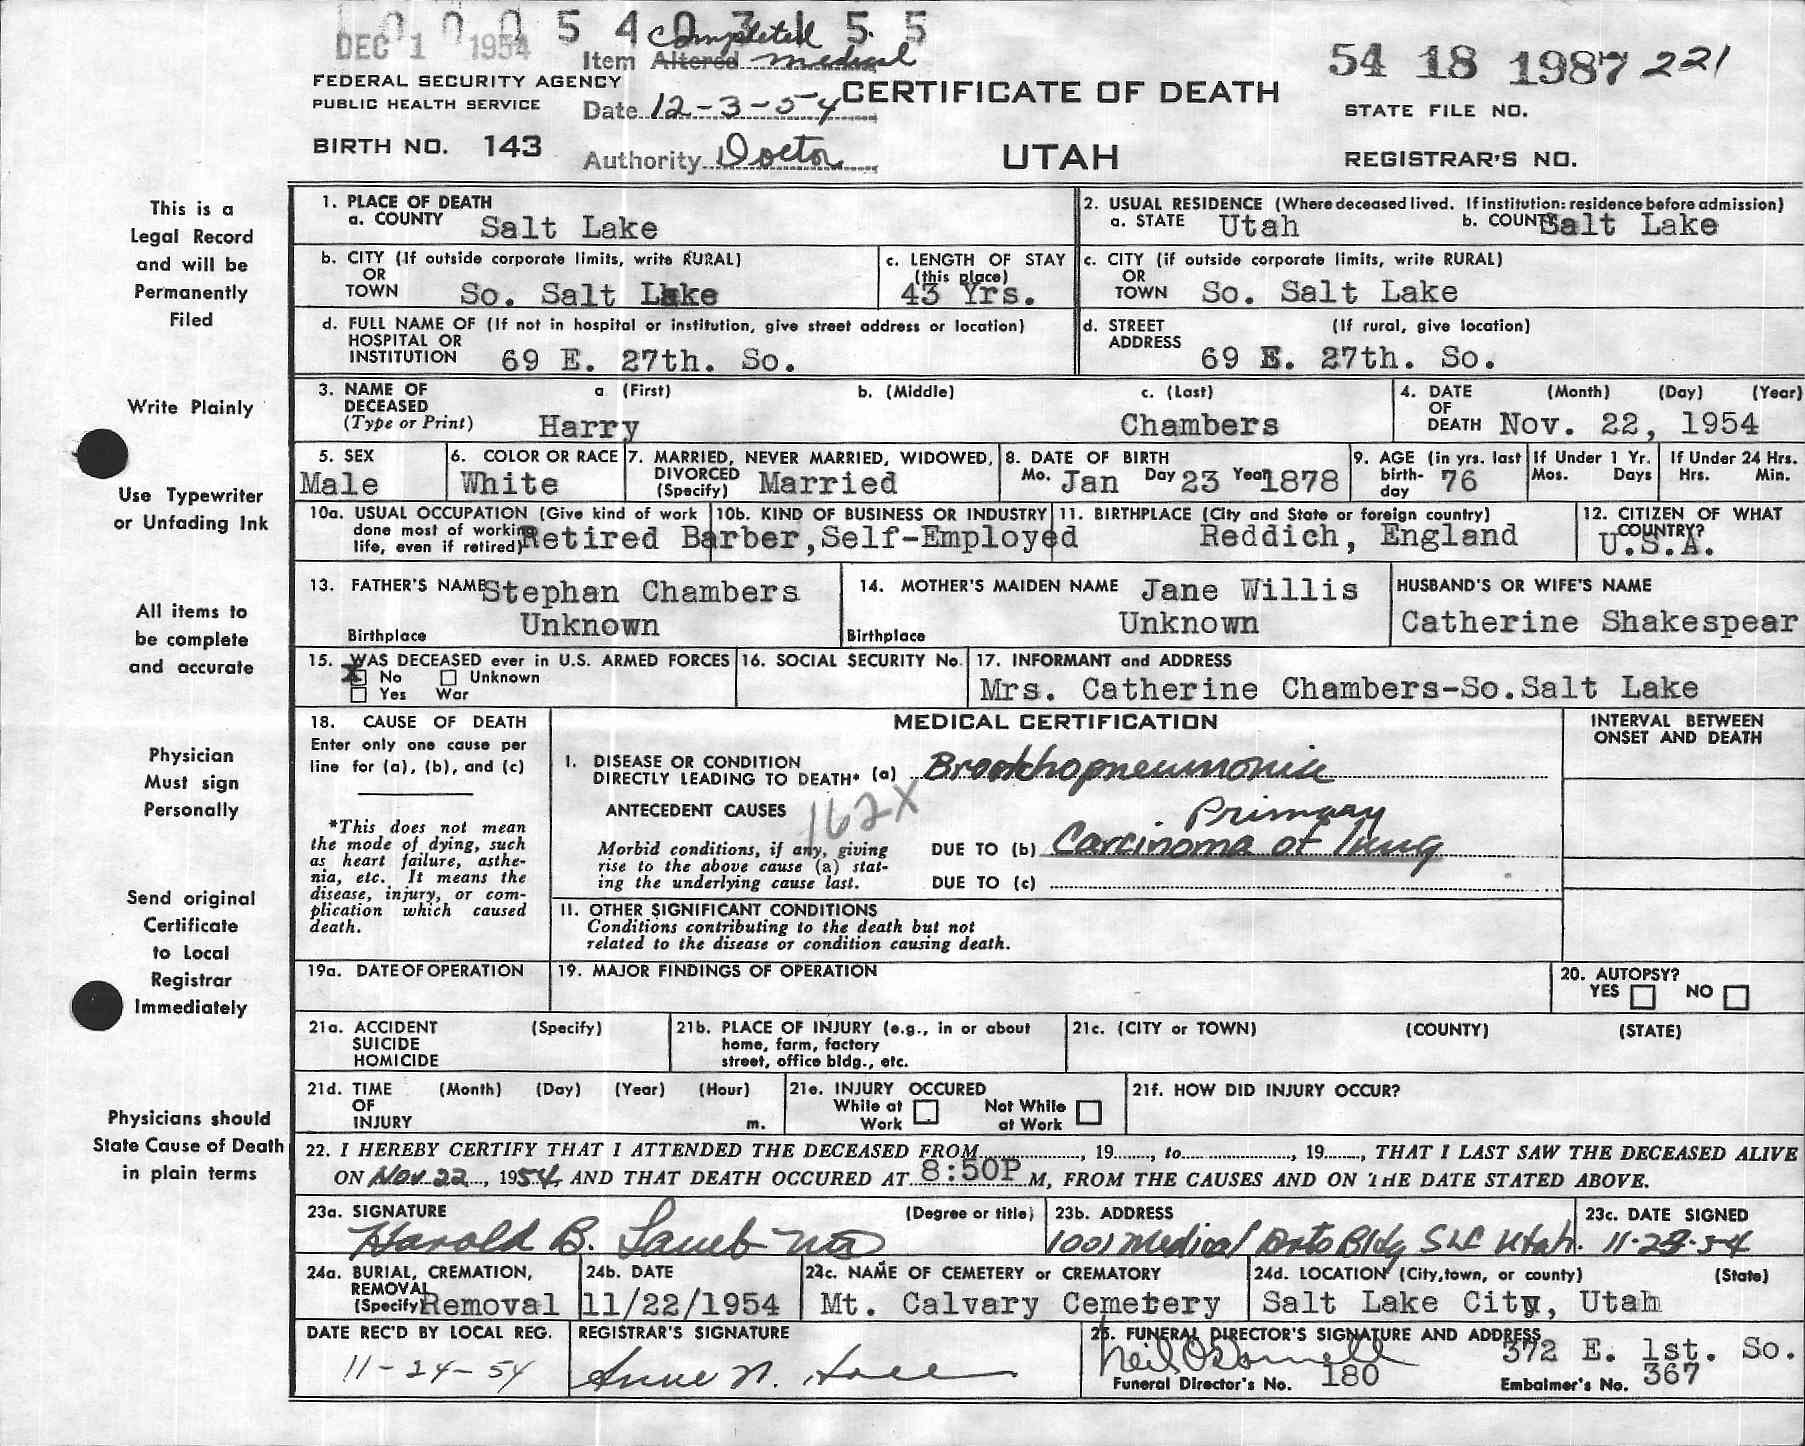 0 0 0 5 4 0 3 1 5 5
DEC 1 1954
Completed
Item Altered medical
54 18 1987 221
FEDERAL SECURITY AGENCY
PUBLIC HEALTH SERVICE
Date 12-3-54
CERTIFICATE OF DEATH
STATE FILE NO.
BIRTH NO. 143
Authority Doctor
UTAH
REGISTRAR'S NO.
This is a
Legal Record
and will be
Permanently
Filed
Write Plainly
Use Typewriter
or Unfading Ink
All items to
be complete
and accurate
Physician
Must sign
Personally
Send original
Certificate
to Local
Registrar
Immediately
Physicians should
State Cause of Death
in plain terms
1. PLACE OF DEATH
a. COUNTY Salt Lake
2. USUAL RESIDENCE (Where deceased lived. If institution: residence before admission)
a. STATE Utah b. COUNTY Salt Lake
b. CITY (If outside corporate limits, write RURAL)
OR
TOWN So. Salt Lake
c. LENGTH OF STAY
(this place)
43 Yrs.
c. CITY (if outside corporate limits, write RURAL)
OR
TOWN So. Salt Lake
d. FULL NAME OF (If not in hospital or institution, give street address or location)
HOSPITAL OR
INSTITUTION 69 E. 27th. So.
d. STREET (If rural, give location)
ADDRESS 69 E. 27th. So.
3. NAME OF a (First) b. (Middle) c. (Last)
DECEASED
(Type or Print) Harry Chambers
4. DATE (Month) (Day) (Year)
OF
DEATH Nov. 22, 1954
5. SEX
Male
6. COLOR OR RACE
White
7. MARRIED, NEVER MARRIED, WIDOWED,
DIVORCED
(Specify) Married
8. DATE OF BIRTH
Mo. Jan Day 23 Year 1878
9. AGE (in yrs. last
birth-
day 76
If Under 1 Yr.
Mos. Days
If Under 24 Hrs.
Hrs. Min.
10a. USUAL OCCUPATION (Give kind of work
done most of working
life, even if retired) Retired Barber,
10b. KIND OF BUSINESS OR INDUSTRY
Self-Employed
11. BIRTHPLACE (City and State or foreign country)
Reddich, England
12. CITIZEN OF WHAT
COUNTRY?
U.S.A.
13. FATHER'S NAME Stephan Chambers
Birthplace Unknown
14. MOTHER'S MAIDEN NAME Jane Willis
Birthplace Unknown
HUSBAND'S OR WIFE'S NAME
Catherine Shakespear
15. WAS DECEASED ever in U.S. ARMED FORCES
X No Unknown
Yes War
16. SOCIAL SECURITY No.
17. INFORMANT and ADDRESS
Mrs. Catherine Chambers-So.Salt Lake
18. CAUSE OF DEATH
Enter only one cause per
line for (a), (b), and (c)
*This does not mean
the mode of dying, such
as heart failure, asthe-
nia, etc. It means the
disease, injury, or com-
plication which caused
death.
MEDICAL CERTIFICATION
INTERVAL BETWEEN
ONSET AND DEATH
I. DISEASE OR CONDITION
DIRECTLY LEADING TO DEATH* (a) Bronchopneumonia
ANTECEDENT CAUSES 162X
Primary
Morbid conditions, if any, giving
rise to the above cause (a) stat-
ing the underlying cause last.
DUE TO (b) Carcinoma of lung
DUE TO (c)
II. OTHER SIGNIFICANT CONDITIONS
Conditions contributing to the death but not
related to the disease or condition causing death.
19a. DATE OF OPERATION
19. MAJOR FINDINGS OF OPERATION
20. AUTOPSY?
YES NO
21a. ACCIDENT (Specify)
SUICIDE
HOMICIDE
21b. PLACE OF INJURY (e.g., in or about
home, farm, factory
street, office bldg., etc.
21c. (CITY or TOWN) (COUNTY) (STATE)
21d. TIME (Month) (Day) (Year) (Hour)
OF
INJURY m.
21e. INJURY OCCURED
While at Work Not While at Work
21f. HOW DID INJURY OCCUR?
22. I HEREBY CERTIFY THAT I ATTENDED THE DECEASED FROM ........, 19....., to........, 19....., THAT I LAST SAW THE DECEASED ALIVE
ON Nov 22, 1954, AND THAT DEATH OCCURED AT 8:50P M, FROM THE CAUSES AND ON THE DATE STATED ABOVE.
23a. SIGNATURE (Degree or title)
Harold B.
23b. ADDRESS
1001 Medical Arts Bldg SLC Utah.
23c. DATE SIGNED
24a. BURIAL, CREMATION,
REMOVAL
(Specify) Removal
24b. DATE
11/22/1954
24c. NAME OF CEMETERY or CREMATORY
Mt. Calvary Cemetery
24d. LOCATION (City,town, or county) (State)
Salt Lake City, Utah
DATE REC'D BY LOCAL REG.
11-24-54
REGISTRAR'S SIGNATURE
Anne N.
25. FUNERAL DIRECTOR'S SIGNATURE AND ADDRESS
Neil O'Donnell 372 E. 1st. So.
Funeral Director's No. 180 Embalmer's No. 367